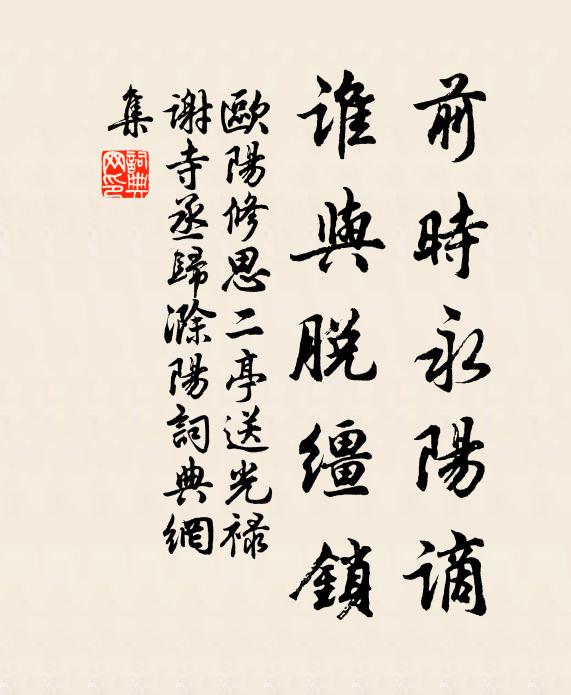 前時永陽謫
誰與脱韁鎖
歐陽修思二亭送光禄
謝寺丞歸滁陽詞典網
集
詞典網印